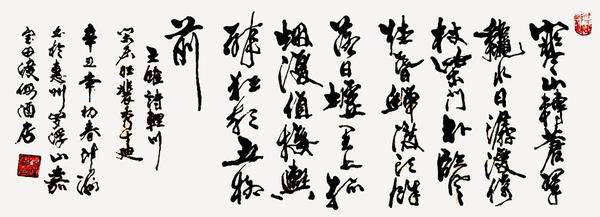 寒山轉蒼翠
秋水日潺湲倚
杖柴門外臨風
聽暮蟬渡頭餘
落日墟里上孤
煙復值接輿
醉狂歌五柳
前
王維詩輞川
閒居贈裴秀才迪
辛丑年初春
书於惠州罗浮山嘉
宝田渡假酒店